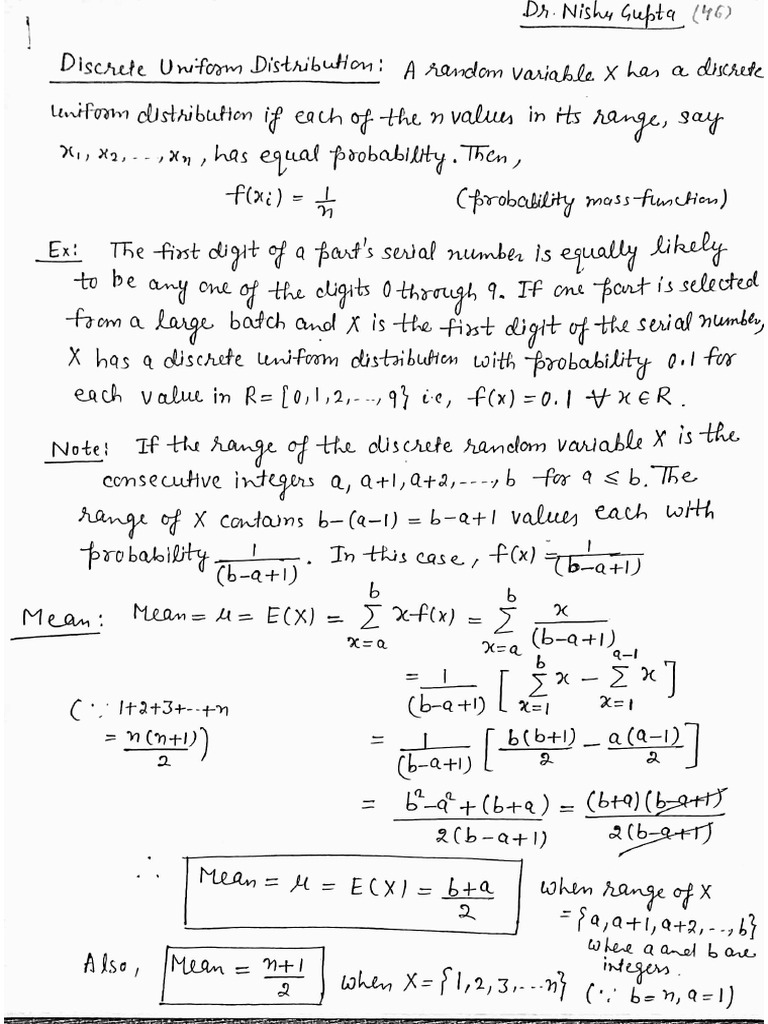 Dr. Nishu Gupta (46)
Discrete Uniform Distribution: A random variable X has a discrete
uniform distribution if each of the n values in its range, say
x₁, x₂, ..., xₙ, has equal probability. Then,
f(xᵢ) = 1/n (probability mass function)
Ex: The first digit of a part's serial number is equally likely
to be any one of the digits 0 through 9. If one part is selected
from a large batch and X is the first digit of the serial number,
X has a discrete uniform distribution with probability 0.1 for
each value in R = {0,1,2,...,9} i.e, f(x) = 0.1 ∀ x ∈ R.
Note: If the range of the discrete random variable X is the
consecutive integers a, a+1, a+2, ----, b for a ≤ b. The
range of X contains b-(a-1) = b-a+1 values each with
probability 1/(b-a+1). In this case, f(x) = 1/(b-a+1)
Mean: Mean = μ = E(X) = Σ_{x=a}^{b} x f(x) = Σ_{x=a}^{b} x/(b-a+1)
= 1/(b-a+1) [Σ_{x=1}^{b} x - Σ_{x=1}^{a-1} x]
(∵ 1+2+3+...+n
= n(n+1)/2)
= 1/(b-a+1) [b(b+1)/2 - a(a-1)/2]
= (b²-a²+(b+a))/(2(b-a+1)) = (b+a)(b-a+1)/(2(b-a+1))
∴ Mean = μ = E(X) = (b+a)/2
when range of X
= {a, a+1, a+2, ..., b}
where a and b are
integers.
Also, Mean = (n+1)/2 when X = {1,2,3,...n} (∵ b=n, a=1)